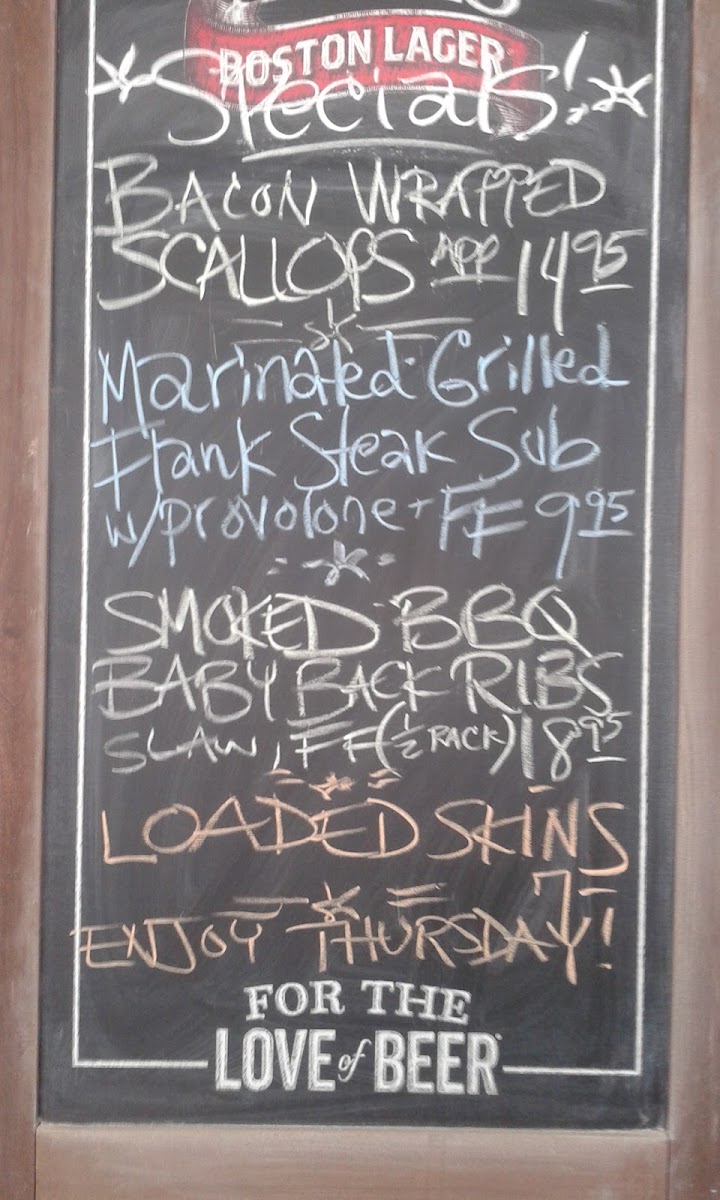 BOSTON LAGER
Specials!
BACON WRAPPED
SCALLOPS APP 14 95
Marinated Grilled
Flank Steak Sub
w/provolone + FF 9 95
SMOKED BBQ
BABY BACK RIBS
SLAW, FF (1/2 RACK) 18 95
LOADED SKINS
7-
ENJOY THURSDAY!
FOR THE
LOVE of BEER